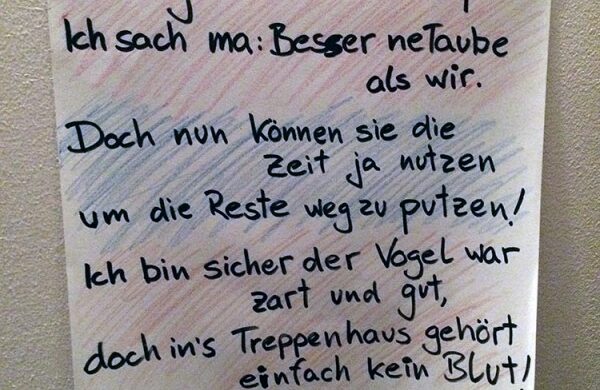 Ich sach ma: Besser neTaube
als wir.
Doch nun können sie die
Zeit ja nutzen
um die Reste wegzuputzen!
Ich bin sicher der Vogel war
zart und gut,
doch in's Treppenhaus gehört
einfach kein Blut!